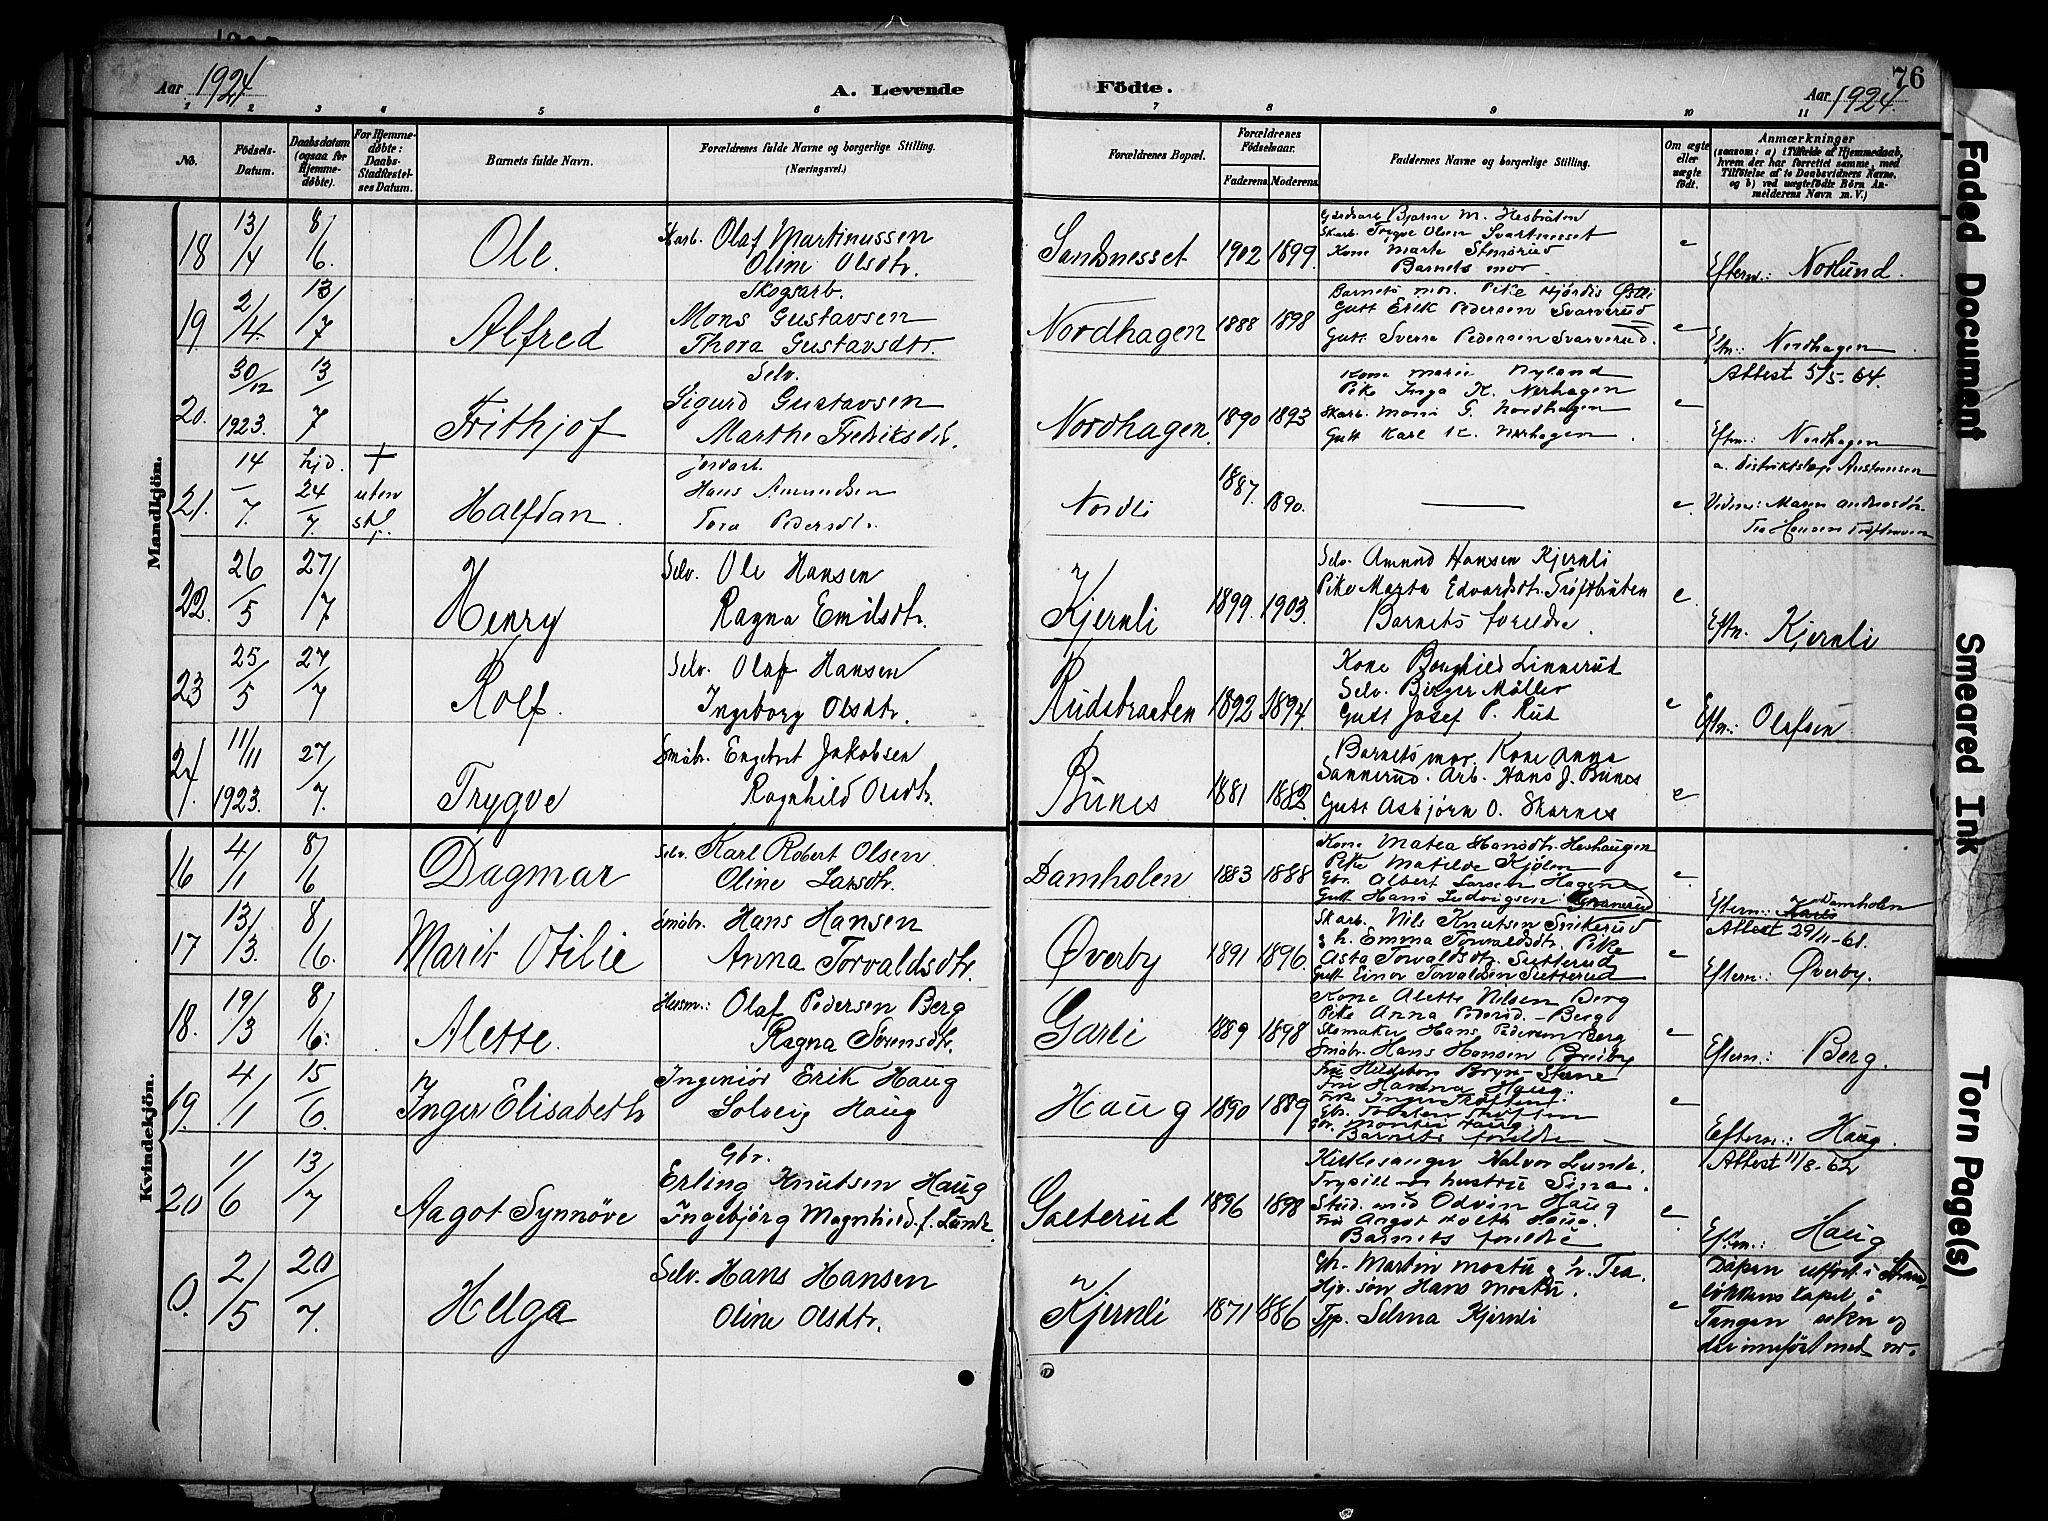 Aar 1924
A. Levende
Födte.
76
Aar 1924.
1 2 3 4 5 6 7 8 9 10 11
No.
Födsels-Datum.
Daabsdatum (ogsaa for Hjemme-döbte).
For Hjemme-döbte: Daabs-Stadfæstel-ses Datum.
Barnets fulde Navn.
Forældrenes fulde Navne og borgerlige Stilling. (Næringsvei.)
Forældrenes Bopæl.
Forældrenes Födselsaar.
Faderens. Moderens.
Faddernes Navne og borgerlige Stilling.
Om ægte eller uægte födt.
Anmærkninger
(saasom: a) i Tilfælde af Hjemmedaab, hvem der har forrettet samme, med Tilföielse af to Daabsvidners Navne, og b) ved uægtefödte Börn An-melderens Navn m. V.)
Mandkjön.
18 13/4 8/6 Ole. Skarb. Olaf Martinussen
Oline Olsdtr.
Sandnesset 1902 1899.
Gårdbarg Bjarne M. Hesbråten
Skarb. Trygve Olsen Svartnesset
Kone Marte Stensrud
Barnets mor.
e Eftern.: Norlund.
19 2/4. 13/7 Alfred
Skogsarb.
Mons Gustavsen
Thora Gustavsdtr.
Nordhagen 1888 1898
Barnets mor. Pike Hjördis Østli
Gutt Erik Pedersen Svarverud
Gutt Sverre Pedersen Svarverud.
e Eftn.: Nordhagen
20. 30/12 1923. 13/7 Frithjof
Selv.
Sigurd Gustavsen
Marthe Fredriksdtr.
Nordhagen. 1890 1893
Kone Marie Nyland
Pike Inga K. Nerhagen
Skarb. Mons G. Nordhagen
Gutt Karl K. Nerhagen.
e Attest 5/5-64.
Eftn.: Nordhagen
21. 14/7. hjd. 24/7. + uten stf. Halfdan.
jordarb.
Hans Amundsen
Tora Pedersdtr.
Nordli 1887. 1890.
e. a. Distriktslæge Austensen
22. 26/5 27/7 Henry Selv. Ole Hansen
Ragna Emilsdtr.
Kjernli 1899. 1903.
Selv. Amund Hansen Kjernli
Pike Marta Edvardsdtr. Tröftbråten
Barnets foreldre.
e. Eftn. Kjernli
23 25/5 27/7 Rolf. Selv. Olaf Hansen
Ingeborg Olsdtr.
Rudsbraaten 1892 1894
Kone Borghild Linnerud
Selv. Birger Möller
Gutt Josef P. Rud
e Eftn.: Olafsen
24. 11/11 1923. 27/7. Trygve Småbr. Engebret Jakobsen
Ragnhild Olsdtr.
Bunes 1881 1882.
Barnets mor. Kone Anna
Sannerud. Arb. Hans J. Bunes
Gutt Asbjørn O. Skarnes
e
Kvindekjön.
16 4/1 8/6 Dagmar Selv. Karl Robert Olsen.
Oline Larsdtr.
Damholen 1883 1888
Kone Matea Hansdtr. Herhaugen
Pike Matilde Kjölen
Gbr. Albert Larsen Hagen
Gutt Hans Ludvigsen Granerud
e. Eftern: Damholen
17 13/3. 8/6. Marit Otilie Småbr. Hans Hansen
Anna Torvaldsdtr.
Øverby 1891 1896.
Skarb. Nils Knutsen Snikerud
& h. Emma Torvaldsdtr. Pike
Asta Torvaldsdtr. Sætterud
Gutt Einar Torvaldsen Sætterud
e Attest 29/11-61.
Eftern.: Øverby.
18. 19/3 8/6. Alette. Husm.: Olaf Pedersen Berg
Ragna Sørensdtr.
Garli 1889 1898
Kone Alette Nilsen Berg
Pike Anna Pedersd. - Berg
Skomaker Hans Pedersen Berg
Småbr. Hans Hansen Breiby
e Eftern.: Berg.
19. 4/1 15/6. Inger Elisabeth Ingeniör Erik Haug
Solveig Haug
Haug 1890 1889
Fru Hanna Haug.
Barnets foreldre
e Eftern.: Haug.
20 1/6 13/7 Aagot Synnöve
Gbr.
Erling Knutsen Haug
Ingebjørg Magnhild f. Lunde
Galterud 1896 1898
Kirkesanger Halvor Lunde.
Trysill og hustru Sina.
Stud. med Odvin Haug
Barnets foreldre
e. Attest 11/8-62
Eftern.: Haug
0. 2/5 20/7. Helga Selv. Hans Hansen
Oline Olsdtr.
Kjernli 1871 1886
Gbr. Martin Mostu & h. Tea.
Hjv. søn Hans Mostu.
Tjp. Selma Kjernli
e Dåpen utfört i Strand-
lökkens kapel i
Tangen sokn og
der innført med nr.
Faded Document
Smeared Ink
Torn Page(s)